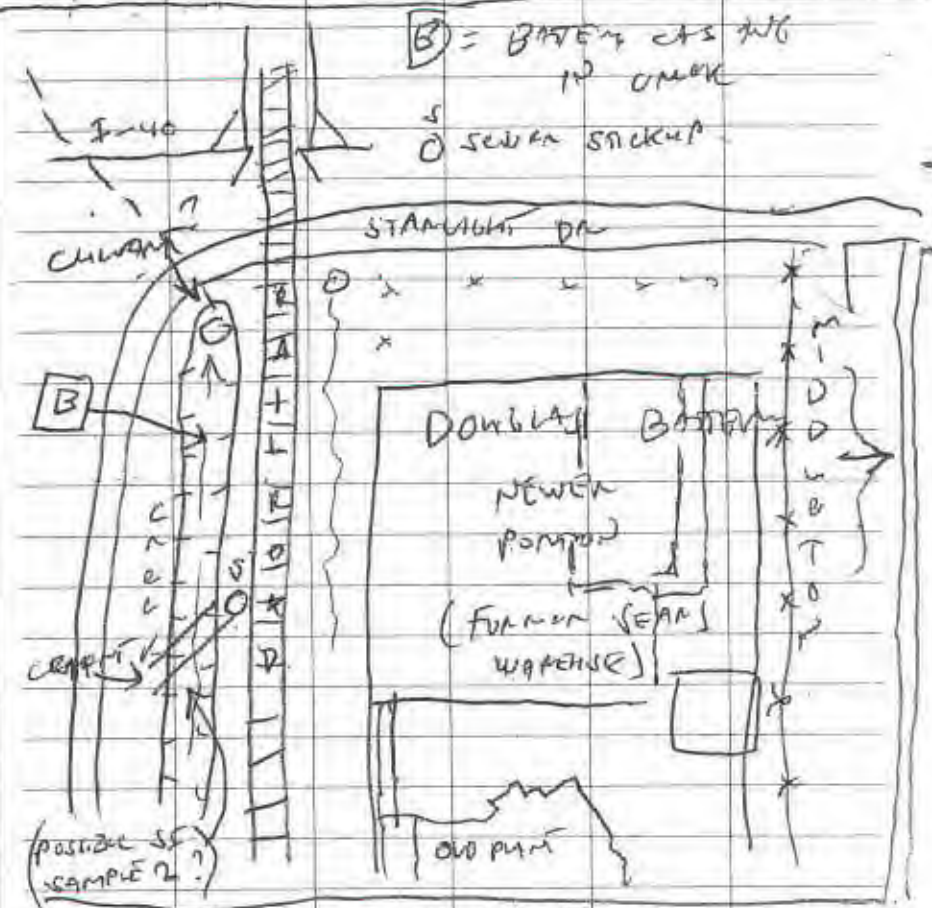 B = BATTERY CASING
IN CREEK
S
O SEWER STICKUP
I-40
STARLIGHT DR
CULVERT
RAILROAD
B
DOUGLAS BATTERY
NEWER
PORTION
(FORMER SEARS
WAREHOUSE)
CREEK
S
OLD PLANT
(POSSIBLE SS
SAMPLE 2 ?)